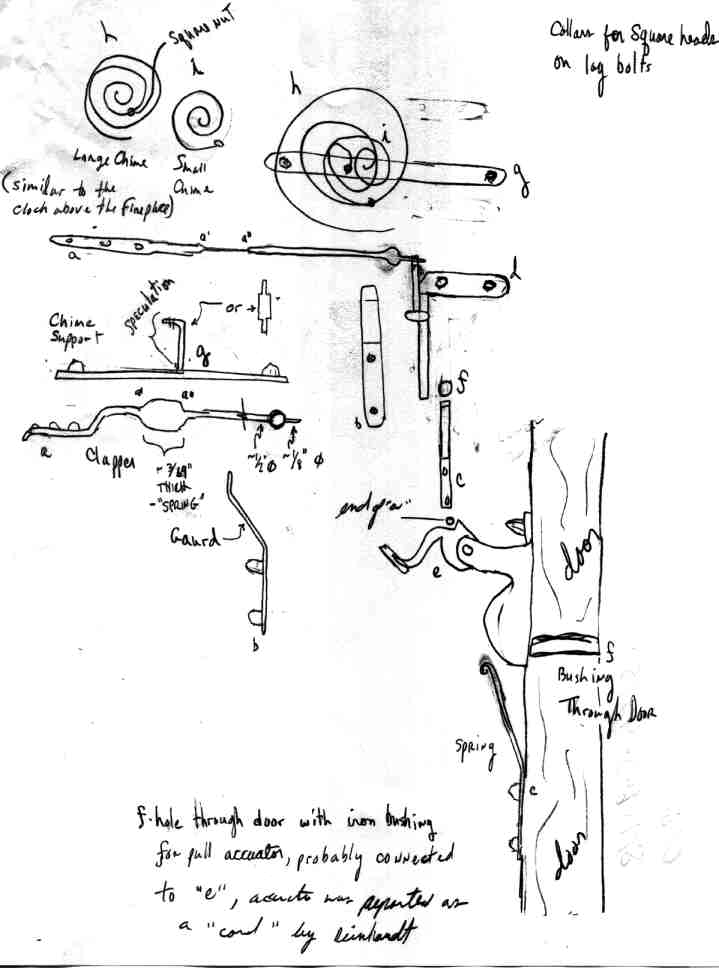 h
Square nut
Collars for Square heads
on lag bolts
i
Large Chime
Small
Chime
(similar to the
clock above the fireplace)
h
i
g
a
a'
a"
d
Chime
Support
Speculation
or
g
b
f
c
a'
a"
a
Clapper
~ 3/64"
THICK
- "SPRING"
~1/2" Ø
~1/8" Ø
Gaurd
b
end of "a"
e
door
f
Bushing
Through Door
Spring
c
door
f-hole through door with iron bushing
for pull accuator, probably connected
to "e", was reported as
a "cord" by Reinhardt